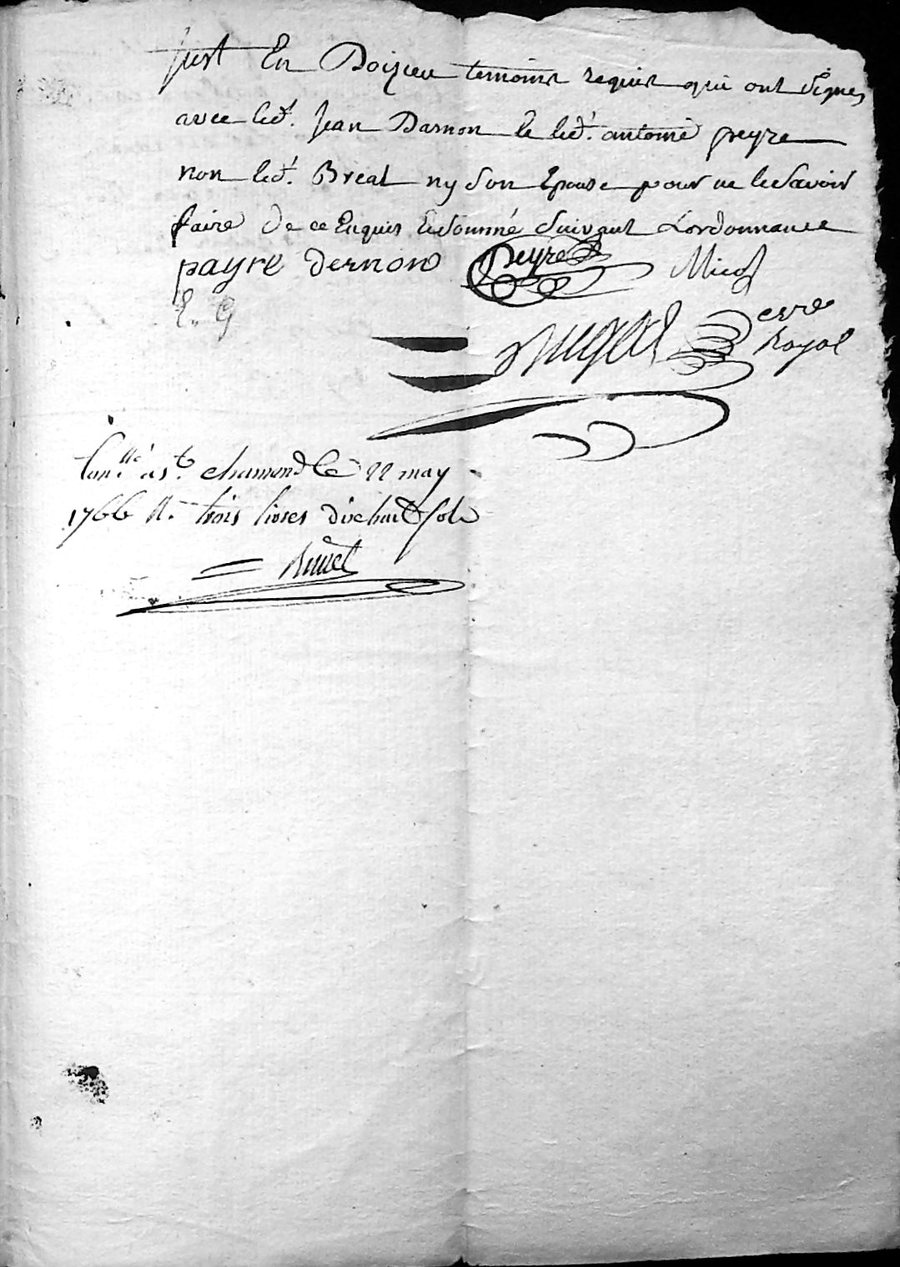 just En Doizieu temoins requis qui ont signes
avec led.t Jean Darnon le led.t antoine peyre
non led.t Breat ny son Epouse pour ne le savoir
faire de ce Enquis et sommé suivant Lordonnance
payre dernon Peyre Micol
E. G
notre royal
Con.llé a s.t chamond le 22 may
1766 R. trois livres dix huit sols